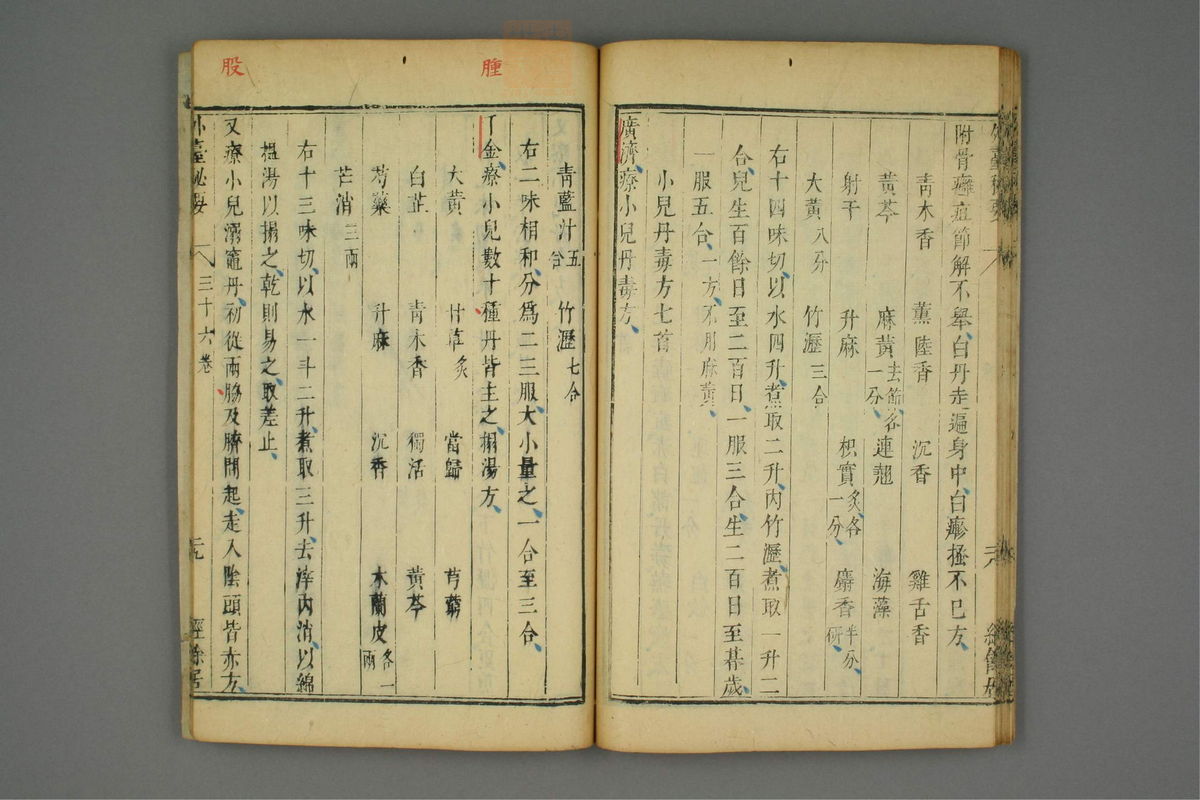 附骨癰疽節解不舉白丹走遍身中白瘮搔不已方
青木香 薫陸香 沉香 雞舌香
黃芩 麻黃去節各一分 連翹 海藻
射干 升麻 枳實炙各一分 麝香半分研
大黃八分 竹瀝三合
右十四味切以水四升煮取二升內竹瀝煮取一升二
合兒生百餘日至二百日一服三合生二百日至朞歲
一服五合一方不用麻黃
小兒丹毒方七首
廣濟療小兒丹毒方
青藍汁五合 竹瀝七合
右二味相和分為二三服大小量之一合至三合
療小兒數十種丹皆主之搨湯方
大黃 甘草炙 當歸 芎藭
白芷 青木香 獨活 黃芩
芍藥 升麻 沉香 木蘭皮各一兩
芒消三兩
右十三味切以水一斗二升煮取三升去滓內消以綿
搵湯以搨之乾則易之取差止
又療小兒溺竈丹初從兩股及臍間起走入陰頭皆赤方
外臺秘要 三十六卷 經餘居
腫
股